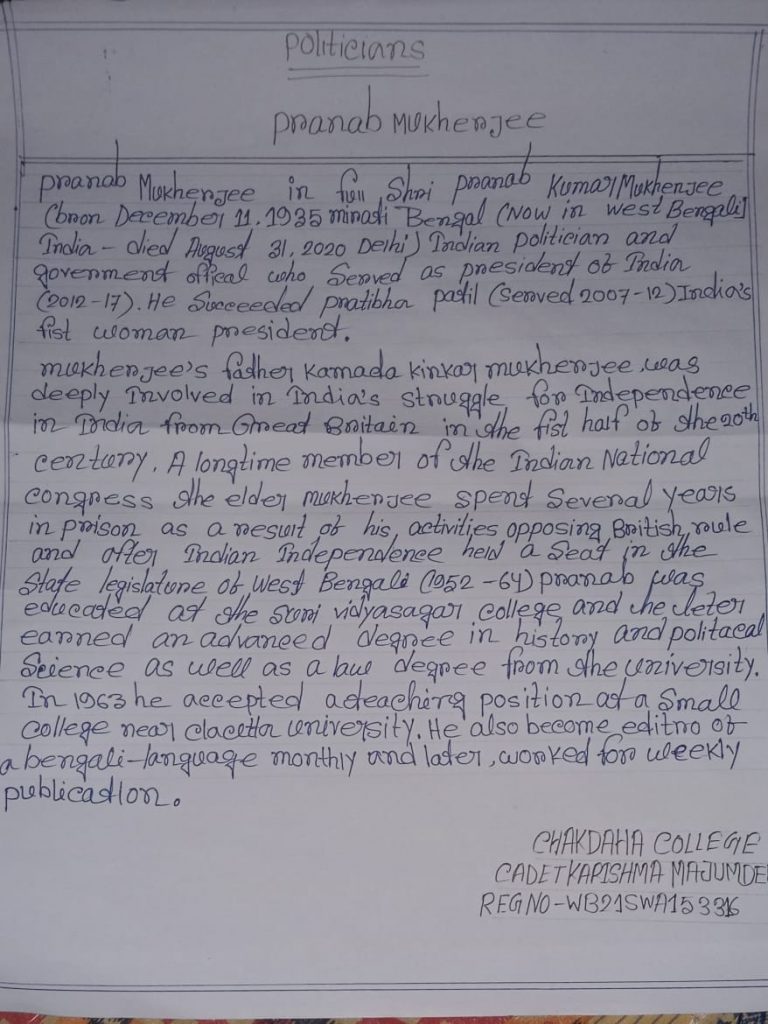 Politicians
Pranab Mukherjee
Pranab Mukherjee in full Shri Pranab Kumar Mukherjee
(bron December 11.1935 minati Bengal (Now in west Bengali]
India - died August 31, 2020 Delhi) Indian politician and
govenment offical who Served as president of India
(2012-17). He Succeeded pratibha patil (Served 2007-12) India's
fist woman president.
mukherjee's father Kamada kinkar mukherjee was
deeply Involved in India's struggle for Independence
in India from Great Britain in the fist half of the 20th
century. A longtime member of the Indian National
congress the elder mukherjee spent Several years
in prison as a result of his activities opposing British rule
and after Indian Independence held a Seat in the
State legislature of West Bengali (1952-64) pranab was
educated at the suri vidyasagar college and he leter
earned an advanced degree in history and politacal
Science as well as a law degree from the university.
In 1963 he accepted a teaching position at a Small
college near clacetta university. He also become editro of
a bengali-language monthly and later, worked for weekly
publication.
CHAKDAHA COLLEGE
CADET KARISHMA MAJUMDE
REG NO-WB21SWA153316